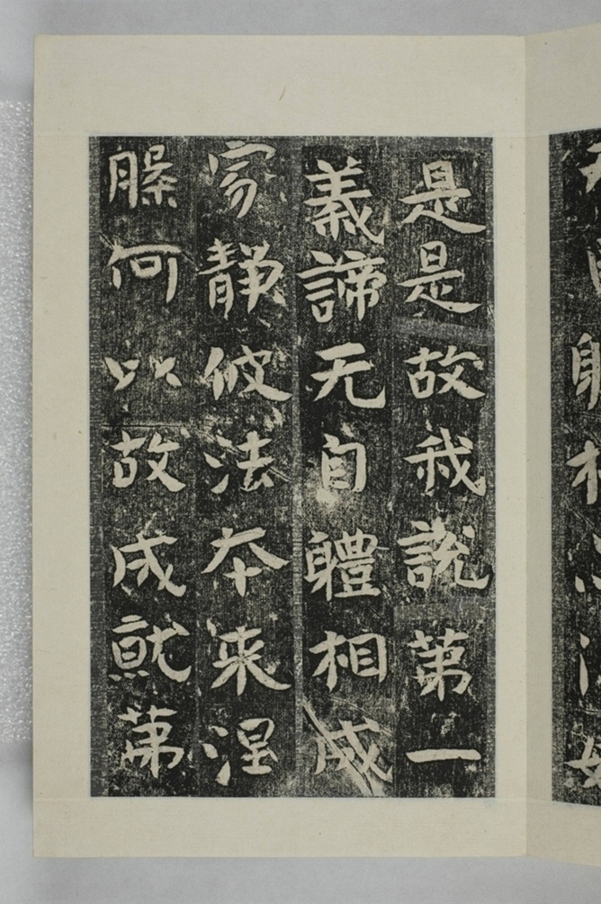 是是故我說第一
義諦无自體相成
寂静彼法本来涅
槃何以故成就第